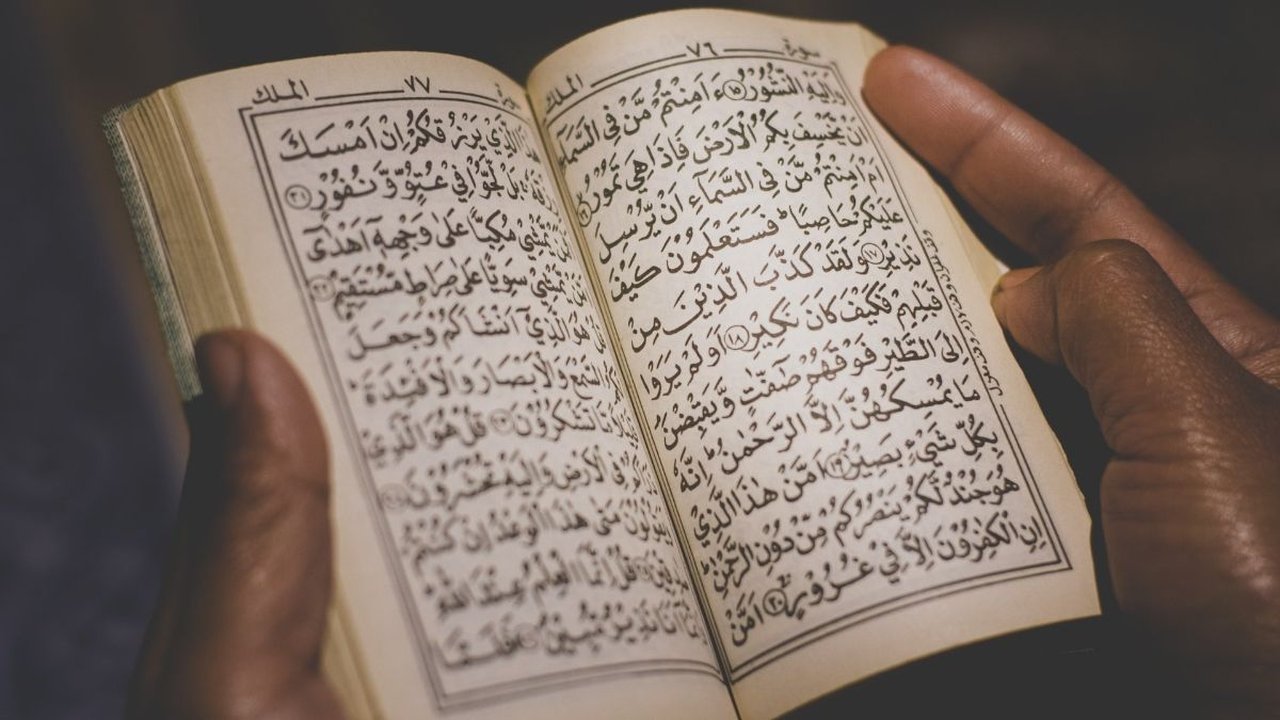 سورة ٧٦ الملك
وَاِلَيْهِ النُّشُوْرُ ﴿١٥﴾ ءَاَمِنْتُمْ مَّنْ فِى السَّمَآءِ
اَنْ يَّخْسِفَ بِكُمُ الْاَرْضَ فَاِذَا هِيَ تَمُوْرُ ﴿١٦﴾
اَمْ اَمِنْتُمْ مَّنْ فِى السَّمَآءِ اَنْ يُّرْسِلَ
عَلَيْكُمْ حَاصِبًا ؕ فَسَتَعْلَمُوْنَ كَيْفَ
نَذِيْرِ ﴿١٧﴾ وَلَقَدْ كَذَّبَ الَّذِيْنَ مِنْ
قَبْلِهِمْ فَكَيْفَ كَانَ نَكِيْرِ ﴿١٨﴾ اَوَلَمْ يَرَوْا
اِلَى الطَّيْرِ فَوْقَهُمْ صٓفّٰتٍ وَّيَقْبِضْنَ
مَا يُمْسِكُهُنَّ اِلَّا الرَّحْمٰنُ ؕ اِنَّهٗ
بِكُلِّ شَيْءٍۢ بَصِيْرٌ ﴿١٩﴾ اَمَّنْ هٰذَا الَّذِيْ
هُوَ جُنْدٌ لَّكُمْ يَنْصُرُكُمْ مِّنْ دُوْنِ الرَّحْمٰنِ ؕ
اِنِ الْكٰفِرُوْنَ اِلَّا فِيْ غُرُوْرٍ ﴿٢٠﴾ اَمَّنْ
سورة ٧٧ الملك
هٰذَا الَّذِيْ يَرْزُقُكُمْ اِنْ اَمْسَكَ
رِزْقَهٗ ۚ بَلْ لَّجُّوْا فِيْ عُتُوٍّ وَّنُفُوْرٍ ﴿٢١﴾
يَّمْشِيْ مُكِبًّا عَلٰى وَجْهِهٖٓ اَهْدٰٓى
يَّمْشِيْ سَوِيًّا عَلٰى صِرَاطٍ مُّسْتَقِيْمٍ ﴿٢٢﴾
هُوَ الَّذِيْٓ اَنْشَاَكُمْ وَجَعَلَ
السَّمْعَ وَالْاَبْصَارَ وَالْاَفْـِٕدَةَ ؕ
مَّا تَشْكُرُوْنَ ﴿٢٣﴾ قُلْ هُوَ الَّذِيْ
فِى الْاَرْضِ وَاِلَيْهِ تُحْشَرُوْنَ ﴿٢٤﴾
مَتٰى هٰذَا الْوَعْدُ اِنْ كُنْتُمْ
قُلْ اِنَّمَا الْعِلْمُ عِنْدَ اللّٰهِ
اَنَا نَذِيْرٌ مُّبِيْنٌ ﴿٢٦﴾ فَلَمَّا